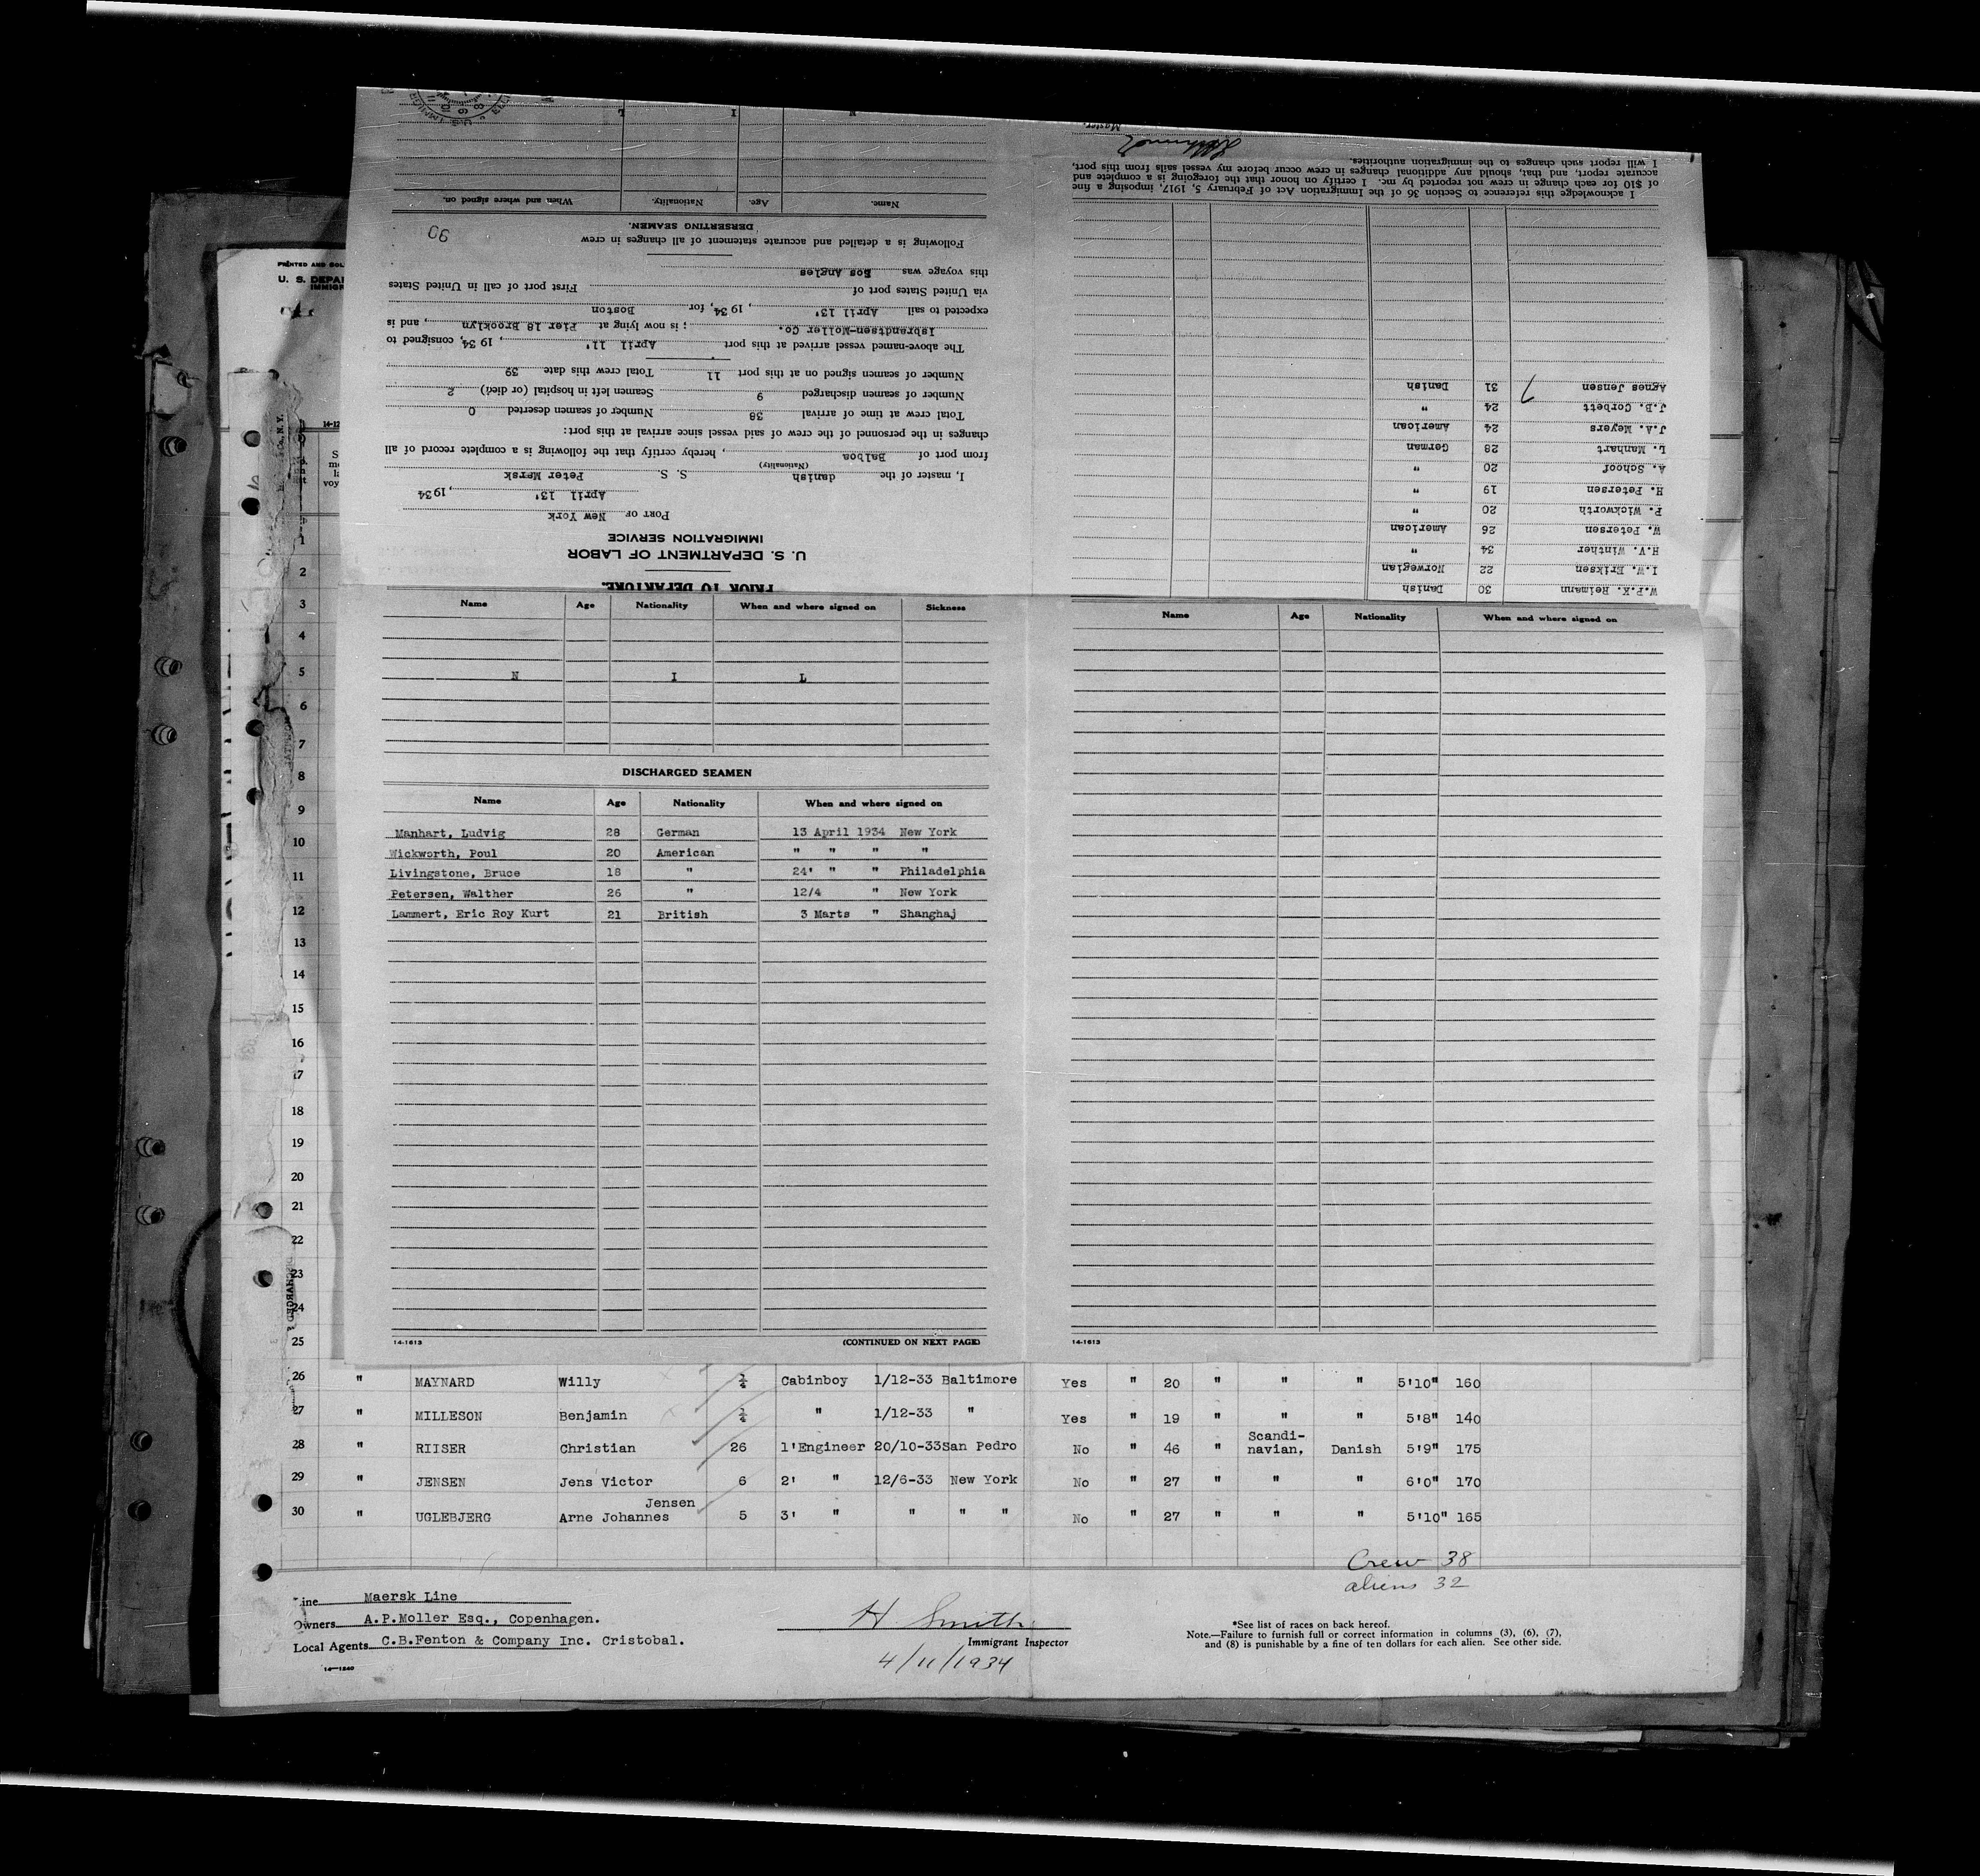 I will report such changes to the immigration authorities.
accurate report, and that, should any additional changes in crew occur before my vessel sails from this port,
of $10 for each change in crew not reported by me. I certify on honor that the foregoing is a complete and
I acknowledge this reference to Section 36 of the Immigration Act of February 5, 1917, imposing a fine
Master.
Agnes Jensen 31 Danish
J.B. Corbett 24 "
J.A. Meyers 24 American
L. Manhart 28 German
A. Schoof 20 "
H. Petersen 19 "
P. Wickworth 20 "
W. Petersen 26 American
H.V. Winther 34 "
I.W. Eriksen 22 Norwegian
W.P.K. Reimann 30 Danish
PRIOR TO DEPARTURE.
U. S. DEPARTMENT OF LABOR
IMMIGRATION SERVICE
PORT OF New York
April 13', 1934
I, master of the danish S. S. Peter Mærsk
(Nationality)
from port of Balboa, hereby certify that the following is a complete record of all
changes in the personnel of the crew of said vessel since arrival at this port:
Total crew at time of arrival 38 Number of seamen deserted 0
Number of seamen discharged 9 Seamen left in hospital (or died) 2
Number of seamen signed on at this port 11 Total crew this date 39
The above-named vessel arrived at this port April 11', 1934, consigned to
Isbrandtsen-Moller Co.; is now lying at Pier 18 Brooklyn, and is
expected to sail April 13', 1934, for Boston
via United States port of First port of call in United States
this voyage was Los Angles
Following is a detailed and accurate statement of all changes in crew
90
DESERTING SEAMEN.
Name. Age. Nationality. When and where signed on.
N I L
PRINTED AND SOL
U. S. DEPA
IMMIGR
14-12
Name Age Nationality When and where signed on Sickness
N I L
DISCHARGED SEAMEN
Name Age Nationality When and where signed on
Manhart, Ludvig 28 German 13 April 1934 New York
Wickworth, Poul 20 American " " " "
Livingstone, Bruce 18 " 24' " " Philadelphia
Petersen, Walther 26 " 12/4 " New York
Lammert, Eric Roy Kurt 21 British 3 Marts " Shanghaj
14-1613 (CONTINUED ON NEXT PAGE)
Name Age Nationality When and where signed on
14-1613
1
2
3
4
5
6
7
8
9
10
11
12
13
14
15
16
17
18
19
20
21
22
23
24
25
26 " MAYNARD Willy ¼ Cabinboy 1/12-33 Baltimore Yes " 20 " " " 5'10" 160
27 " MILLESON Benjamin ¼ " 1/12-33 " Yes " 19 " " " 5'8" 140
28 " RIISER Christian 26 1'Engineer 20/10-33 San Pedro No " 46 " Scandi-navian, Danish 5'9" 175
29 " JENSEN Jens Victor 6 2' " 12/6-33 New York No " 27 " " " 6'0" 170
30 " UGLEBJERG Arne Johannes Jensen 5 3' " " " " No " 27 " " " 5'10" 165
Crew 38
aliens 32
Line Maersk Line
Owners A.P.Moller Esq., Copenhagen.
Local Agents C.B.Fenton & Company Inc. Cristobal.
14—1240
H. Smith
Immigrant Inspector
4/11/1934
*See list of races on back hereof.
Note.—Failure to furnish full or correct information in columns (3), (6), (7),
and (8) is punishable by a fine of ten dollars for each alien. See other side.